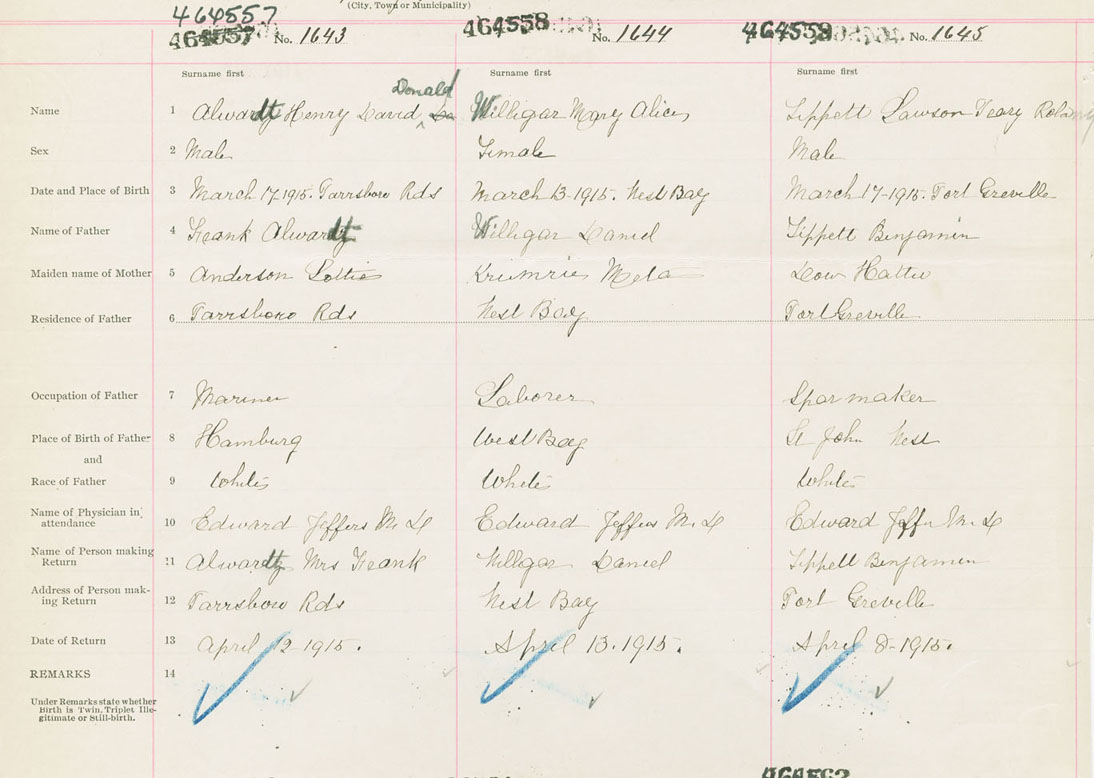 (City, Town or Municipality)
464557
464557 No. 1643 464558 No. 1644 464559 No. 1645
Surname first Surname first Surname first
Donald
Name 1 Alwardt Henry David Willigar Mary Alice Tippett Lawson Peary
Sex 2 Male Female Male
Date and Place of Birth 3 March 17-1915. Parrsboro Rds March 13-1915. West Bay March 17-1915. Port Greville
Name of Father 4 Frank Alwardt Willigar Daniel Tippett Benjamin
Maiden name of Mother 5 Anderson Lottie Krumrie Meta Dow Hattie
Residence of Father 6 Parrsboro Rds West Bay Port Greville
Occupation of Father 7 Mariner Laborer Spar maker
Place of Birth of Father 8 Hamburg West Bay St John West
and
Race of Father 9 White White White
Name of Physician in attendance 10 Edward Jeffers M.D Edward Jeffers M.D Edward Jeffers M.D
Name of Person making Return 11 Alwardt Mrs Frank Willigar Daniel Tippett Benjamin
Address of Person making Return 12 Parrsboro Rds West Bay Port Greville
Date of Return 13 April 12-1915. April 13.1915. April 8-1915.
REMARKS 14
Under Remarks state whether
Birth is Twin, Triplet Ille-
gitimate or Still-birth.